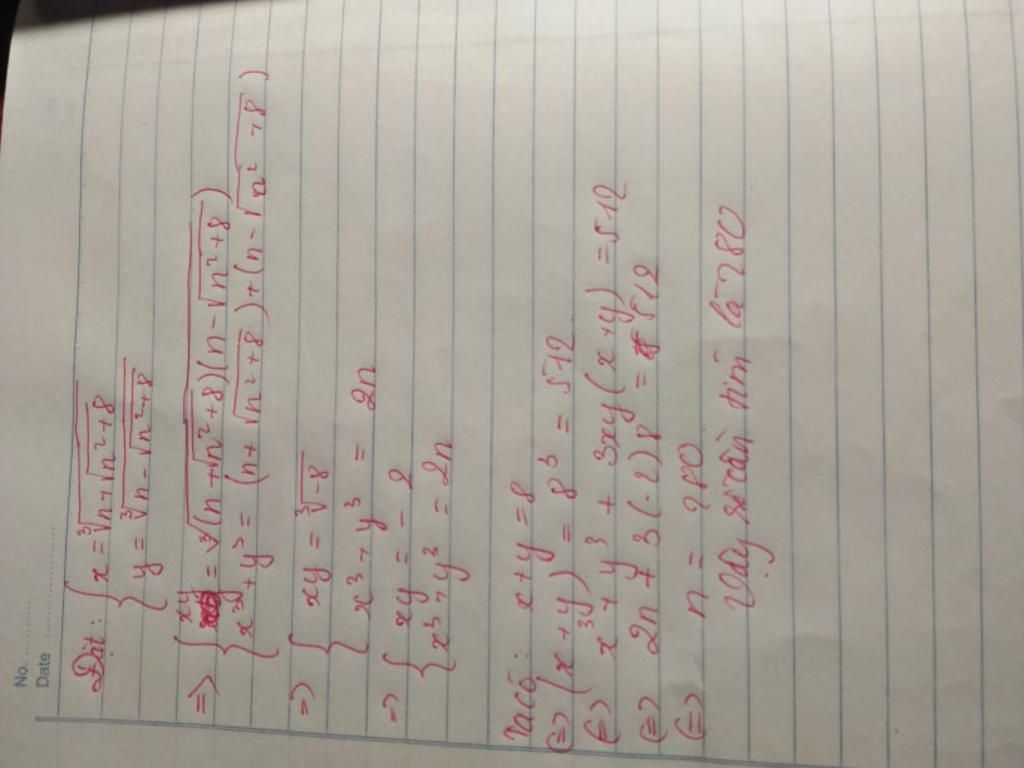 No. ..............
Date ..............
Đặt: { x = ∛(n+√(n²+8))
{ y = ∛(n-√(n²+8))
=> { xy = ∛((n+√(n²+8))(n-√(n²+8)))
{ x³+y³ = (n+√(n²+8))+(n-√(n²+8))
=> { xy = ∛(-8)
{ x³+y³ = 2n
=> { xy = -2
{ x³+y³ = 2n
Ta có: x+y=8
(=) (x+y)³ = 8³ = 512
(=) x³+y³+3xy(x+y)=512
(=) 2n+3(-2)8 = 512
(=) n = 280
Vậy số cần tìm là 280